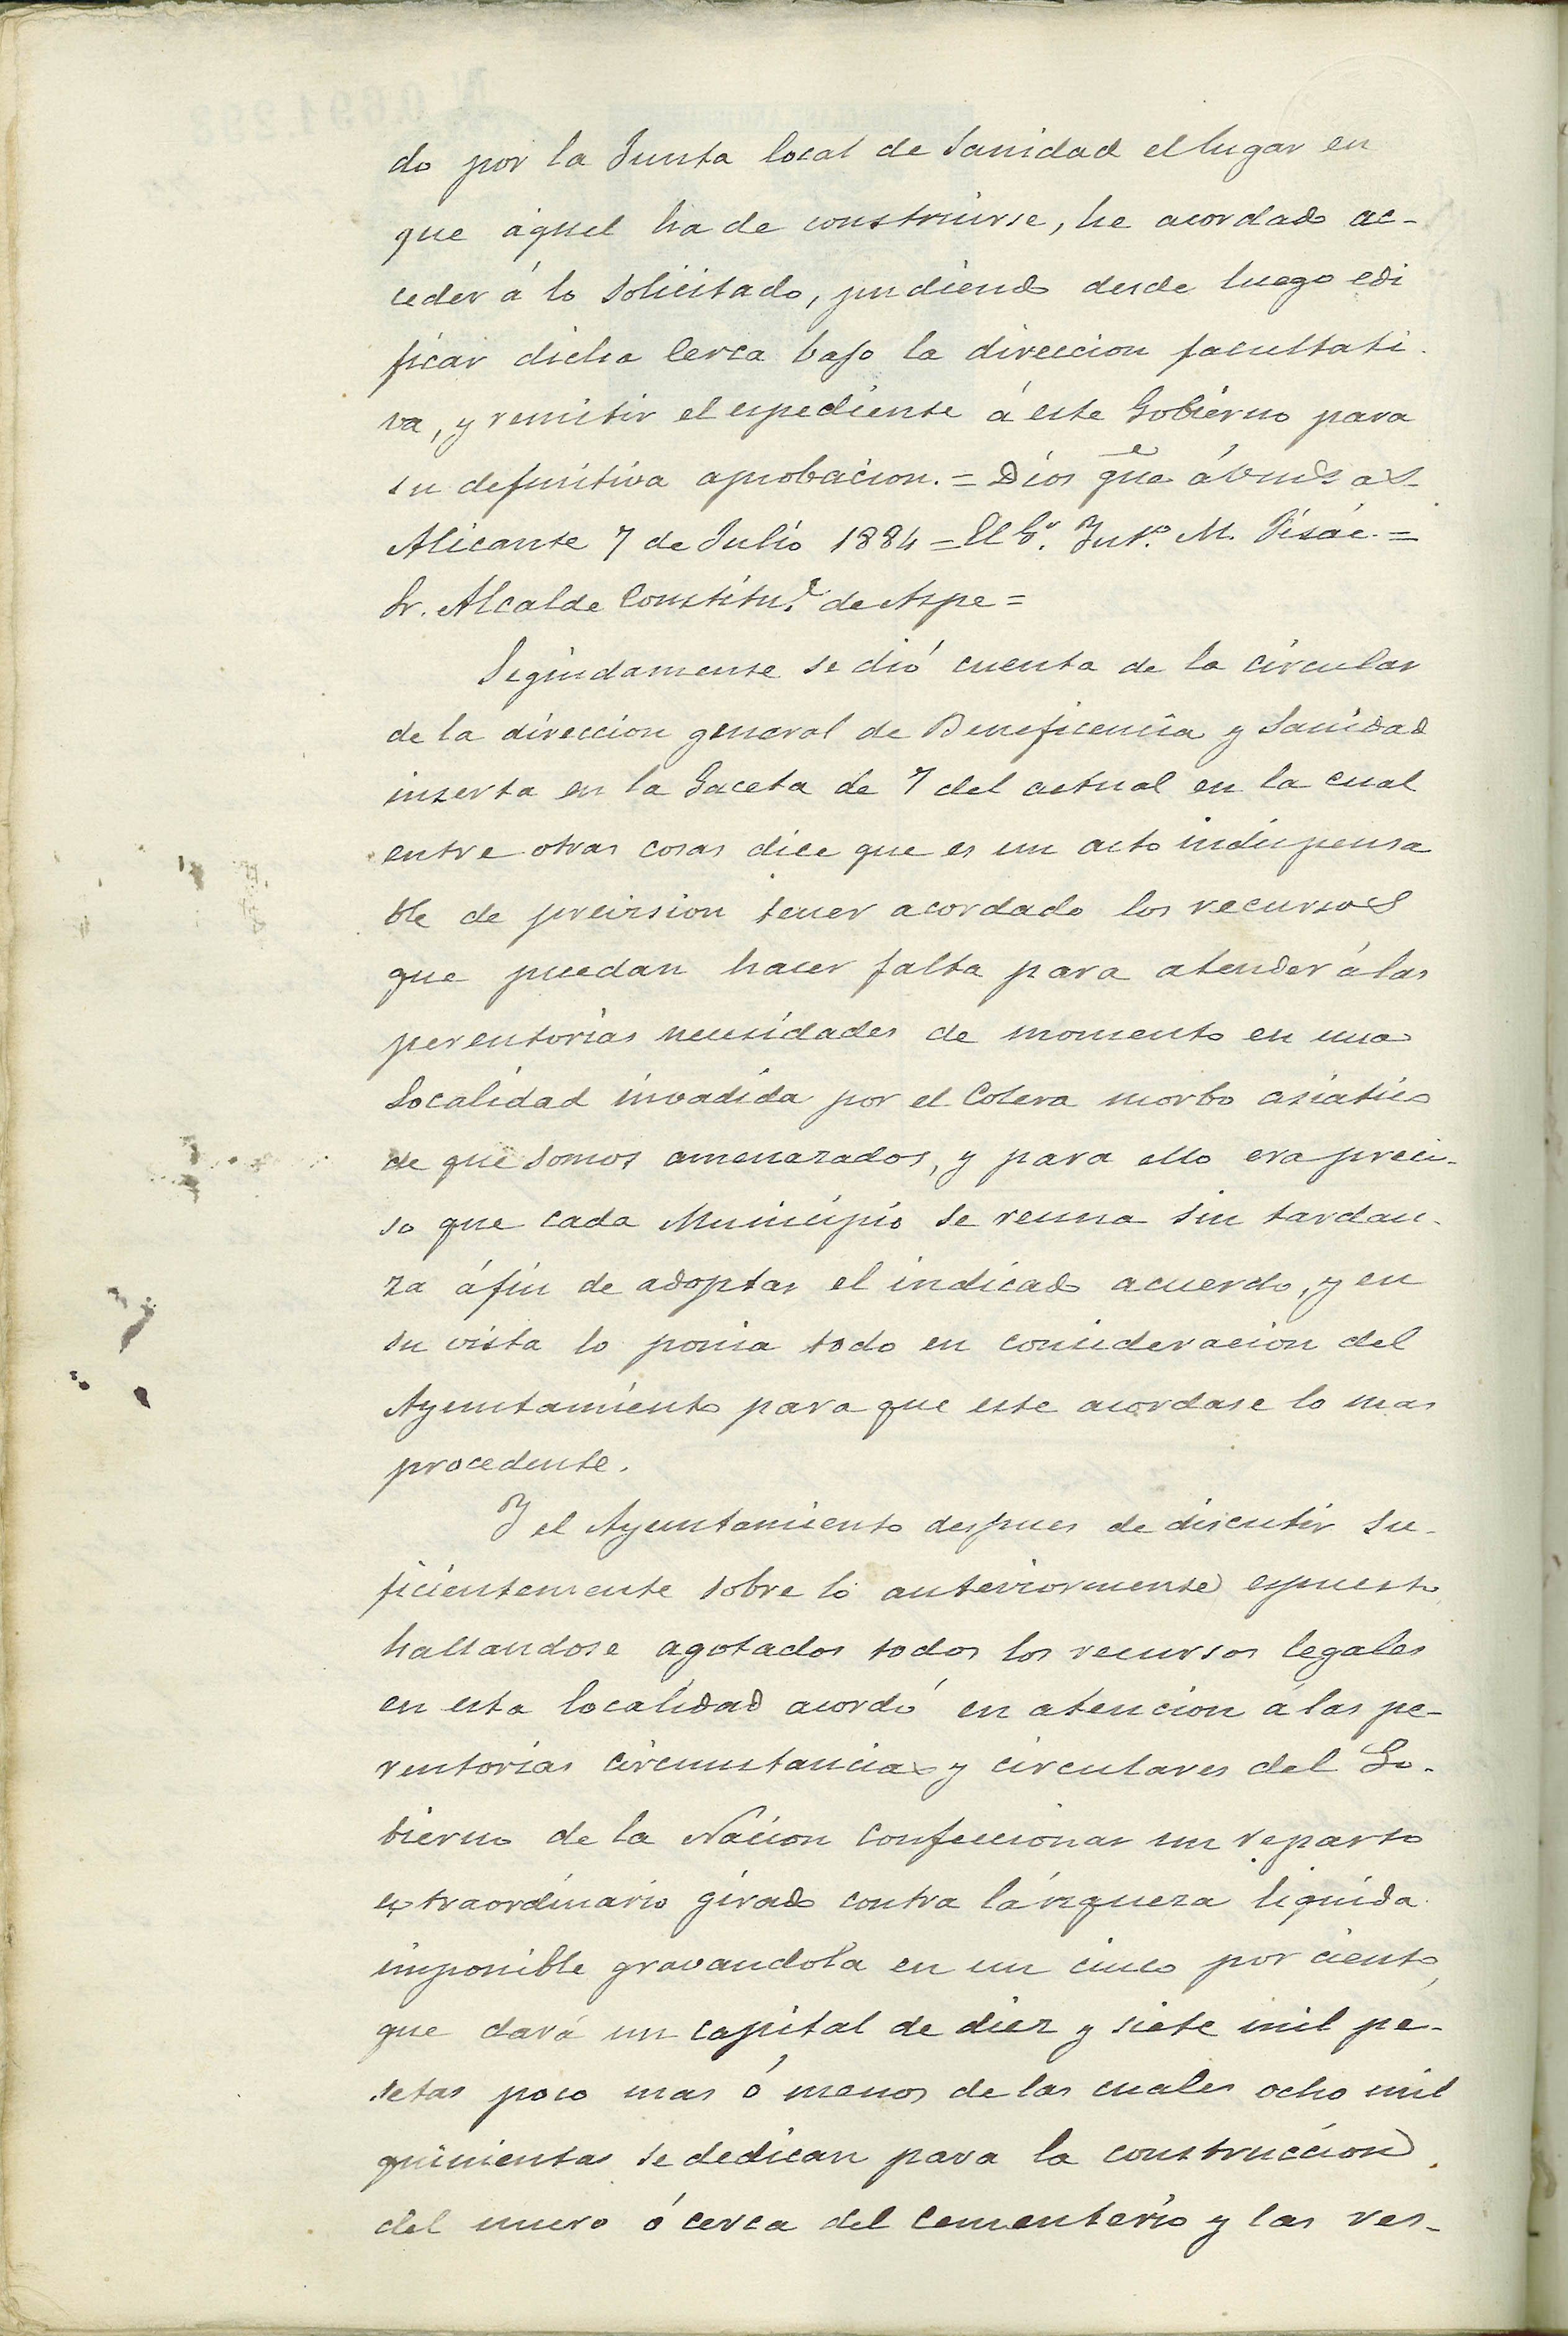 do por la Junta local de Sanidad el lugar en
que aquel ha de construirse, he acordado ac-
ceder á lo solicitado, pudiendo desde luego edi
ficar dicha Cerca bajo la direccion facultati-
va, y remitir el espediente á este Gobierno para
su definitiva aprobacion. = Dios gue á
Alicante 7 de Julio 1884 = El Gr. Into. M. =
Sr. Alcalde Constitul. de Aspe =
Seguidamente se dió cuenta de la circular
de la direccion general de Beneficencia y Sanidad
inserta en la Gaceta de 7 del actual en la cual
entre otras cosas dice que es un acto indispensa
ble de prevision tener acordado los recursos
que puedan hacer falta para atender á las
perentorias necesidades de momento en una
Localidad invadida por el Colera morbo asiatico
de que somos amenazados, y para ello era preci-
so que cada Municipio se reuna sin tardan-
za áfin de adoptar el indicado acuerdo, y en
su vista lo ponia todo en consideracion del
Ayuntamiento para que este acordase lo mas
procedente.
Y el Ayuntamiento despues de discutir su-
ficientemente sobre lo anteriormente espuesto,
hallandose agotados todos los recursos legales
en esta localidad acordó en atencion á las pe-
rentorias circunstancias y circulares del Go-
bierno de la Nacion confeccionar un reparto
extraordinario girado contra la riqueza liquida
imponible gravandola en un cinco por ciento,
que dará un capital de diez y siete mil pe-
setas poco mas ó menos de las cuales ocho mil
quinientas se dedican para la construccion
del muro ó cerca del Cementerio y las res-